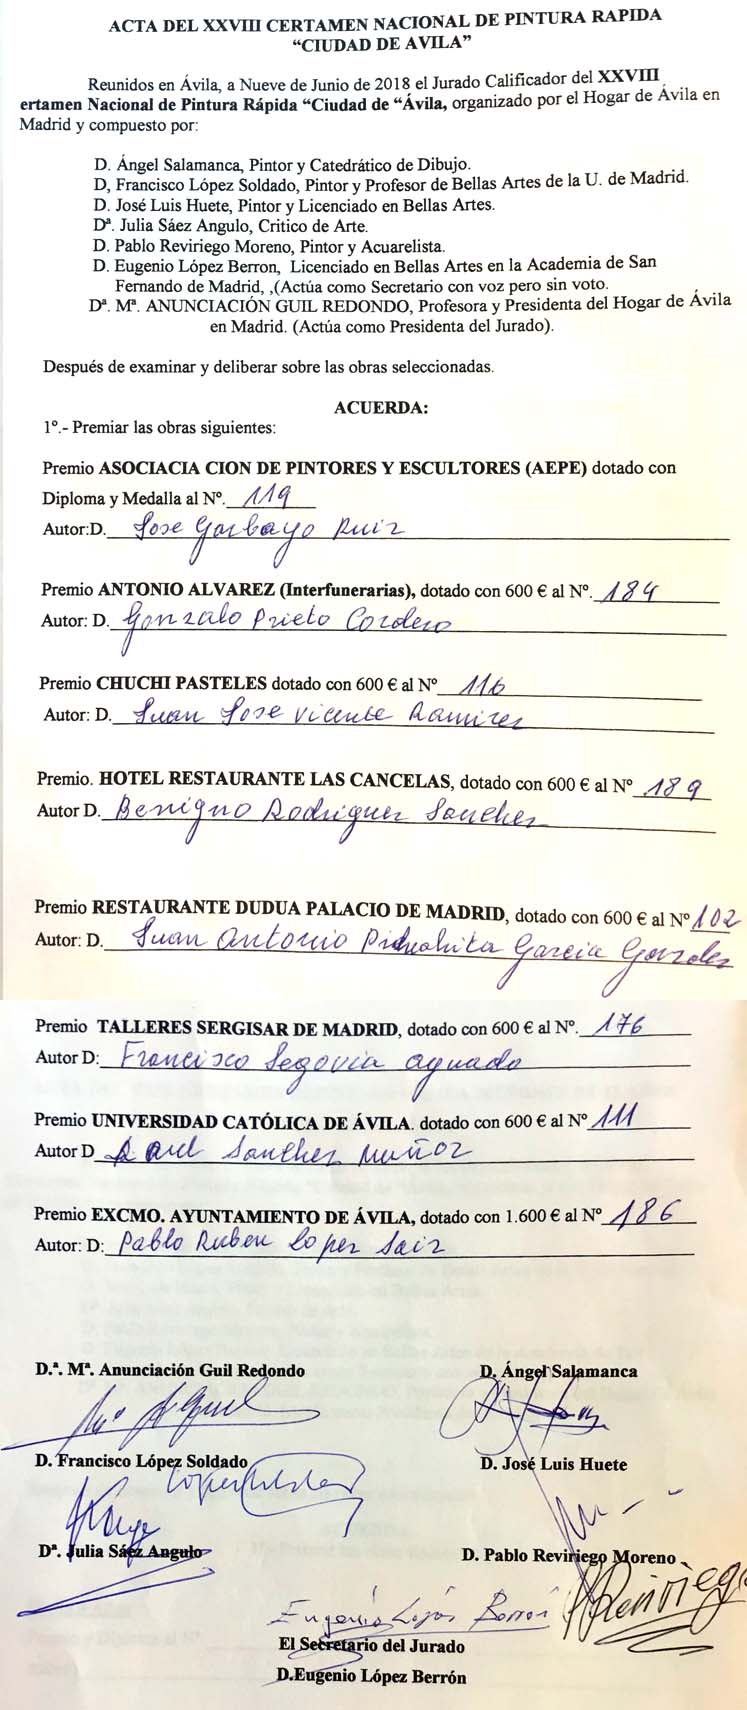 ACTA DEL XXVIII CERTAMEN NACIONAL DE PINTURA RAPIDA
“CIUDAD DE AVILA”
Reunidos en Ávila, a Nueve de Junio de 2018 el Jurado Calificador del XXVIII
ertamen Nacional de Pintura Rápida “Ciudad de “Ávila, organizado por el Hogar de Ávila en
Madrid y compuesto por:
D. Ángel Salamanca, Pintor y Catedrático de Dibujo.
D, Francisco López Soldado, Pintor y Profesor de Bellas Artes de la U. de Madrid.
D. José Luis Huete, Pintor y Licenciado en Bellas Artes.
Dª. Julia Sáez Angulo, Critico de Arte.
D. Pablo Reviriego Moreno, Pintor y Acuarelista.
D. Eugenio López Berron, Licenciado en Bellas Artes en la Academia de San
Fernando de Madrid, ,(Actúa como Secretario con voz pero sin voto.
Dª. Mª. ANUNCIACIÓN GUIL REDONDO, Profesora y Presidenta del Hogar de Ávila
en Madrid. (Actúa como Presidenta del Jurado).
Después de examinar y deliberar sobre las obras seleccionadas.
ACUERDA:
1º.- Premiar las obras siguientes:
Premio ASOCIACIA CION DE PINTORES Y ESCULTORES (AEPE) dotado con
Diploma y Medalla al Nº. 119
Autor:D. Jose Garbayo Ruiz
Premio ANTONIO ALVAREZ (Interfunerarias), dotado con 600 € al Nº. 184
Autor: D. Gonzalo Prieto Cordero
Premio CHUCHI PASTELES dotado con 600 € al Nº 116
Autor: D. Juan Jose Vicente Ramirez
Premio. HOTEL RESTAURANTE LAS CANCELAS, dotado con 600 € al Nº 189
Autor D. Benigno Rodriguez Sanchez
Premio RESTAURANTE DUDUA PALACIO DE MADRID, dotado con 600 € al Nº 102
Autor: D. Juan Antonio Garcia Gonzalez
Premio TALLERES SERGISAR DE MADRID, dotado con 600 € al Nº. 176
Autor D: Francisco Segovia Aguado
Premio UNIVERSIDAD CATÓLICA DE ÁVILA. dotado con 600 € al Nº 111
Autor D Raul Sanchez Muñoz
Premio EXCMO. AYUNTAMIENTO DE ÁVILA, dotado con 1.600 € al Nº 186
Autor: D: Pablo Ruben Lopez Saiz
D.ª. Mª. Anunciación Guil Redondo D. Ángel Salamanca
Mª A Guil
D. Francisco López Soldado D. José Luis Huete
Dª. Julia Sáez Angulo D. Pablo Reviriego Moreno
Eugenio López Berrón Reviriego
El Secretario del Jurado
D.Eugenio López Berrón